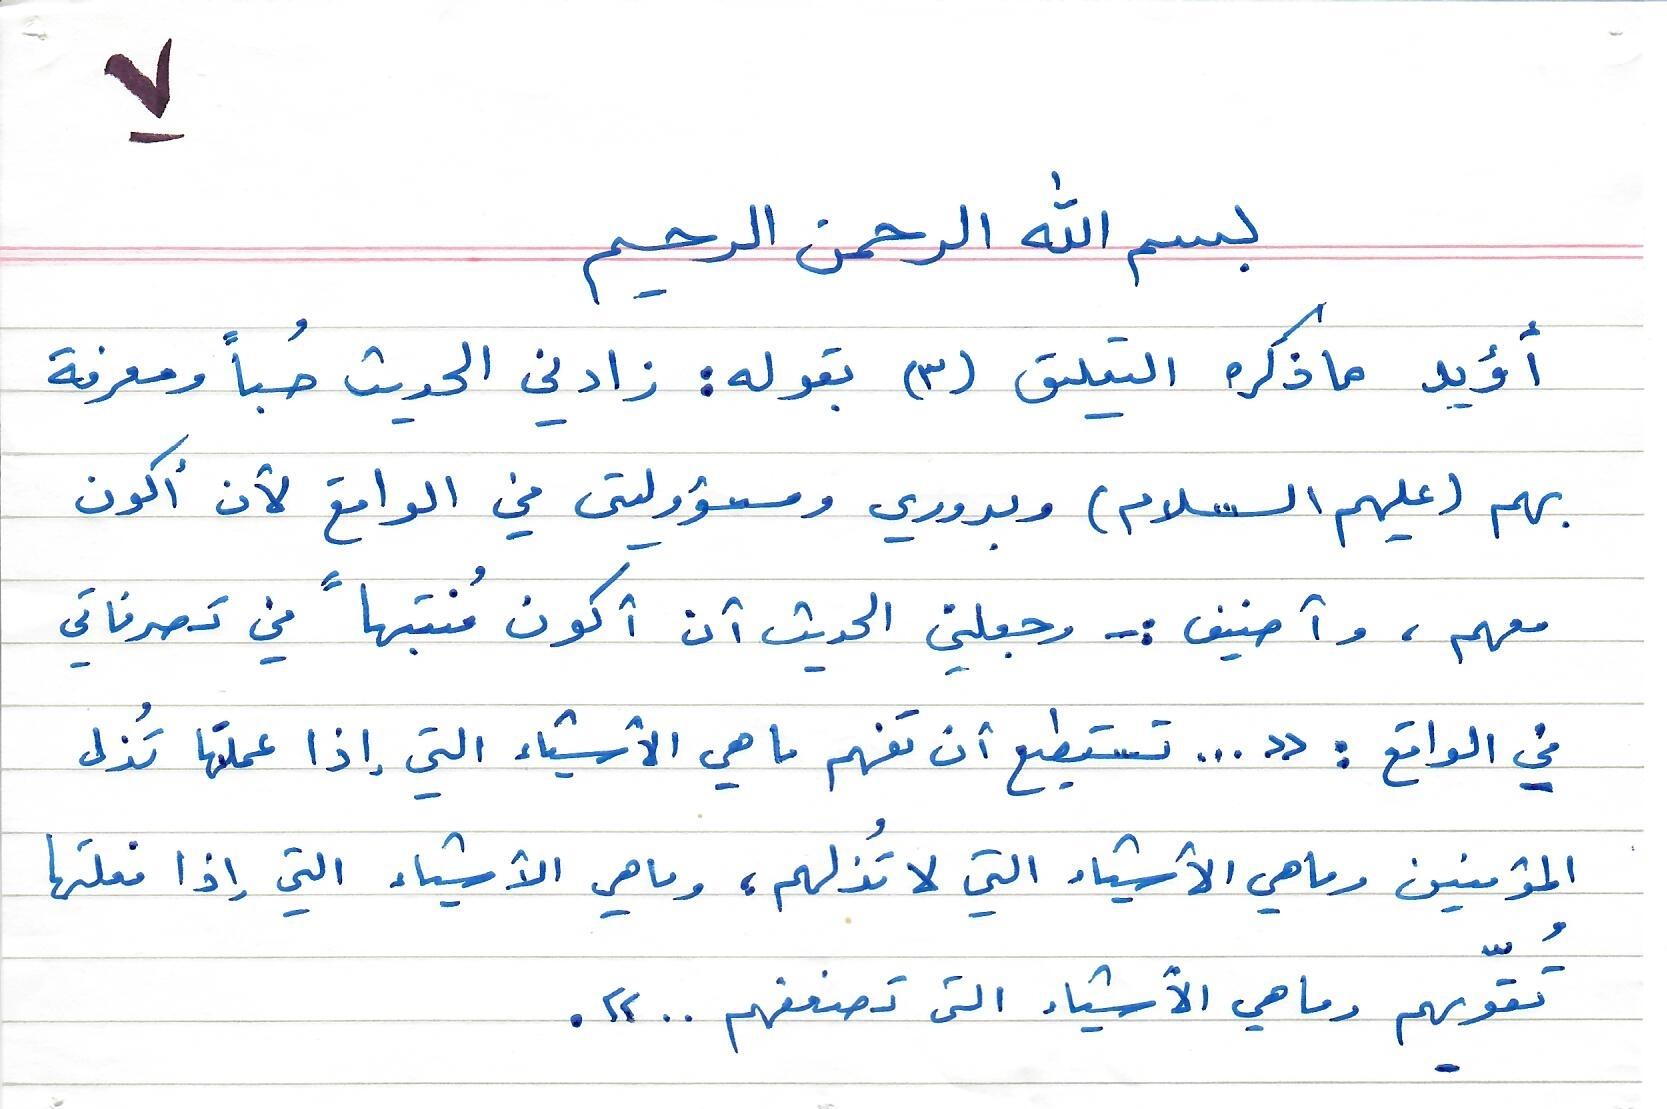 ٧
بسم الله الرحمن الرحيم
أؤيد ما ذكره التعليق (٣) بقوله: زادني الحديث حُباً ومعرفة
بهم (عليهم السلام) وبدوري ومسؤوليتي في الواقع لأن أكون
معهم، وأضيف :- وجعلني الحديث أن أكون مُنتبهاً في تصرفاتي
في الواقع : «... تستطيع أن تفهم ما هي الأشياء التي إذا عملتها تُذل
المؤمنين وماهي الأشياء التي لا تُذلهم، وماهي الأشياء التي إذا فعلتها
تُقوّيهم وماهي الأشياء التي تضعفهم ..».